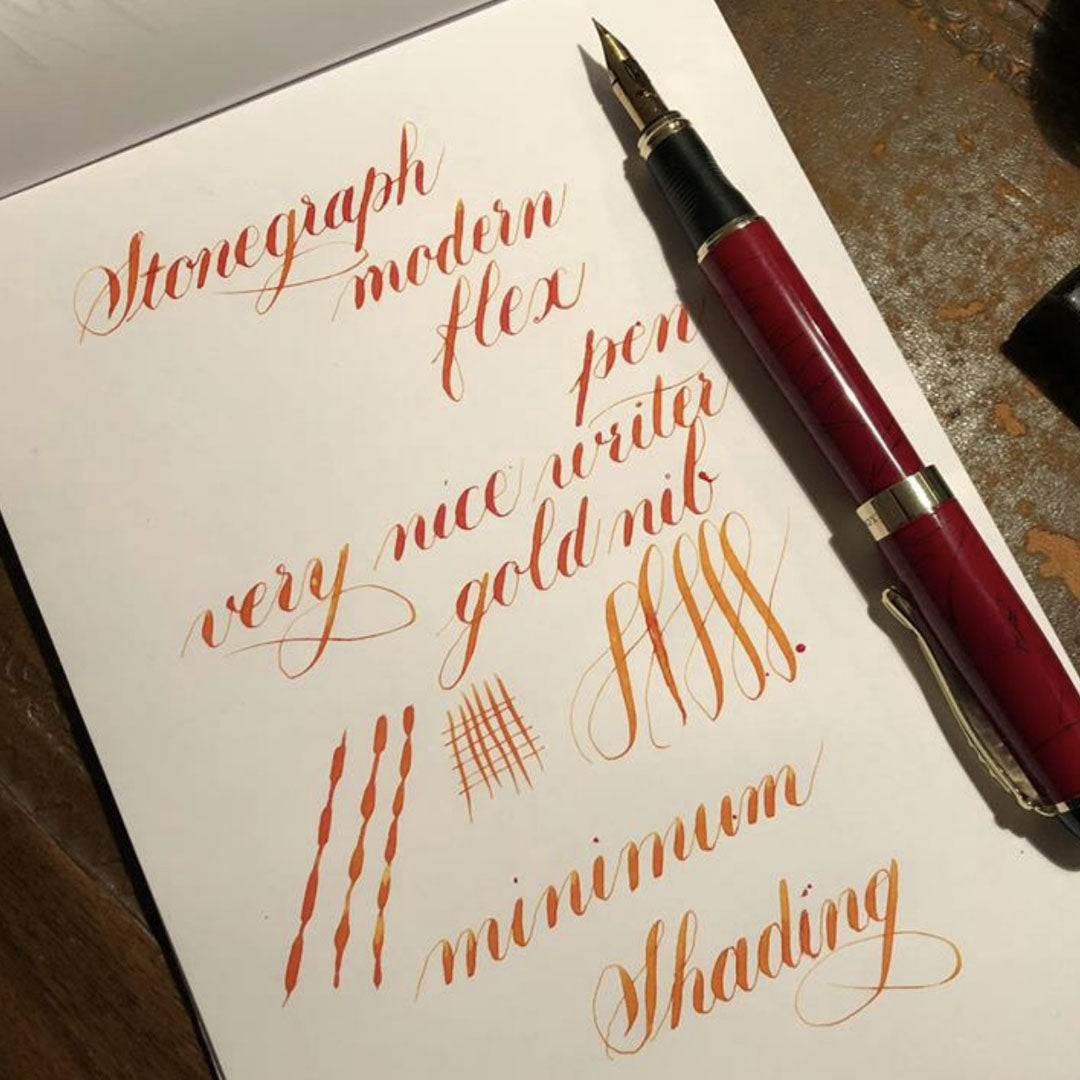 Stonegraph
modern
flex
pen
very nice writer
gold nib
minimum
Shading